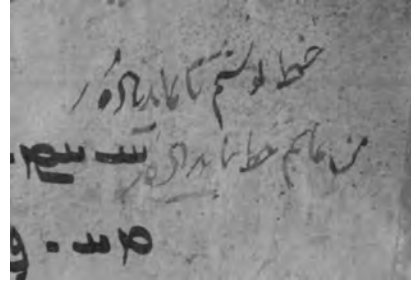 خط نوشتم تا بماند یادگار
من نمانم خط بماند یادگار